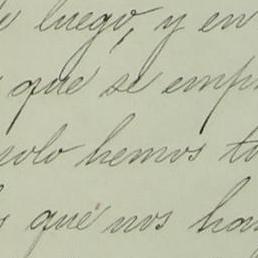 de luego, y en
que se emp
solo hemos to
que nos hay